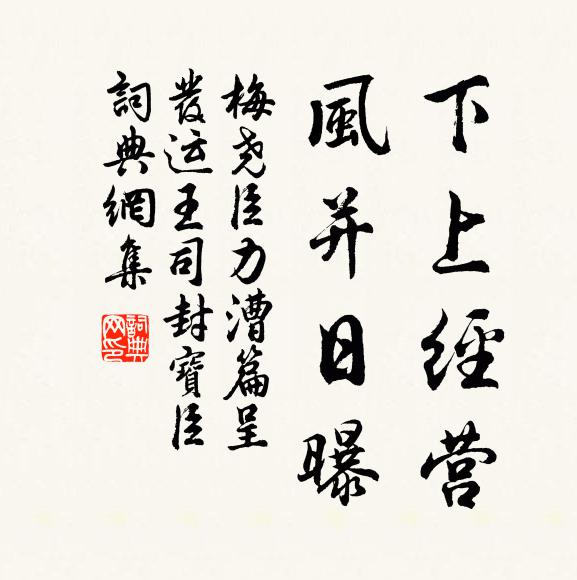 下上經营
風并日曝
梅尧臣力漕篇呈
發运王司封寶臣
詞典網集
詞典网印